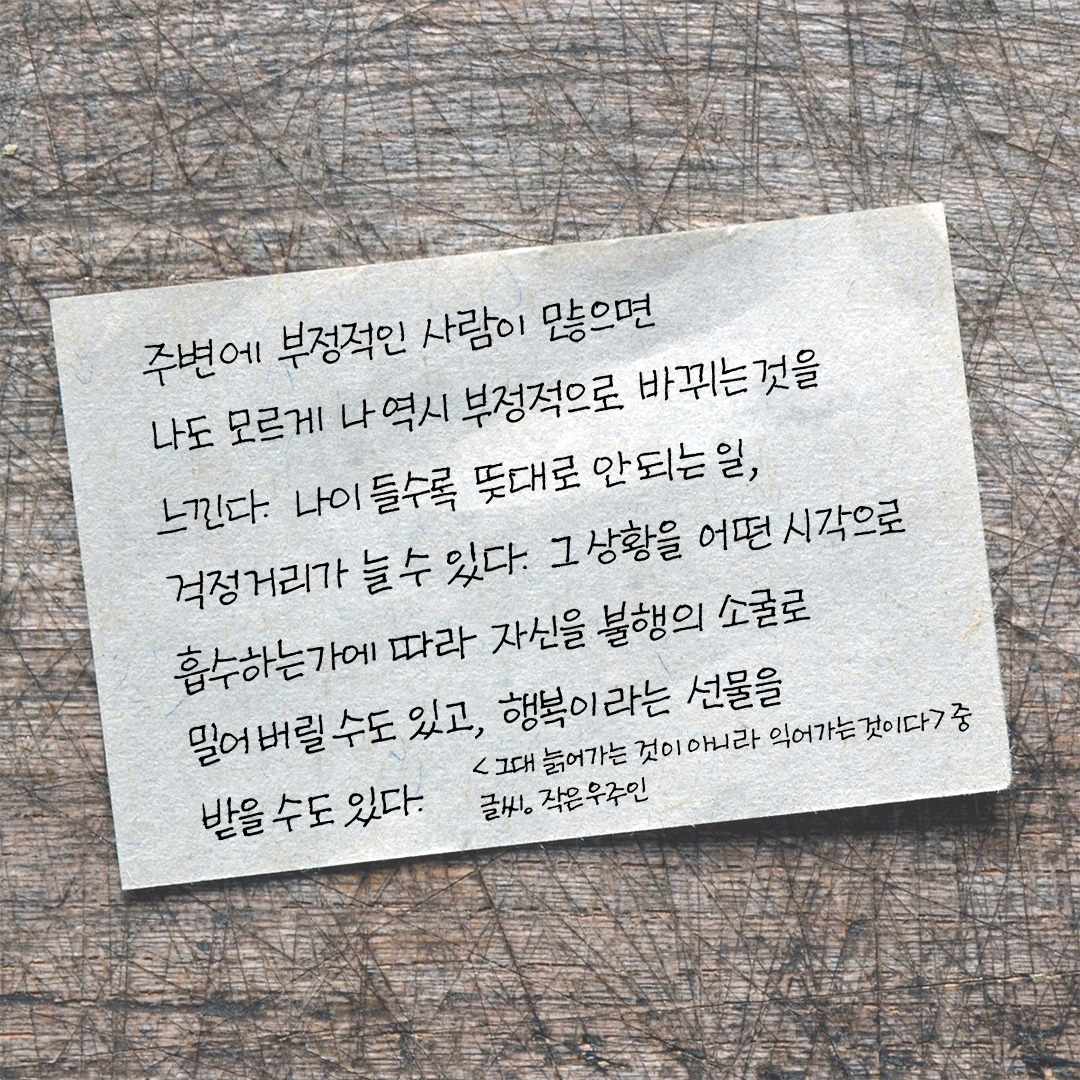 주변에 부정적인 사람이 많으면
나도 모르게 나 역시 부정적으로 바뀌는것을
느낀다. 나이 들수록 뜻대로 안되는 일,
걱정거리가 늘 수 있다. 그 상황을 어떤 시각으로
흡수하는가에 따라 자신을 불행의 소굴로
밀어버릴 수도 있고, 행복이라는 선물을
받을 수도 있다.
<그대 늙어가는 것이 아니라 익어가는것이다> 중
글씨。작은우주인